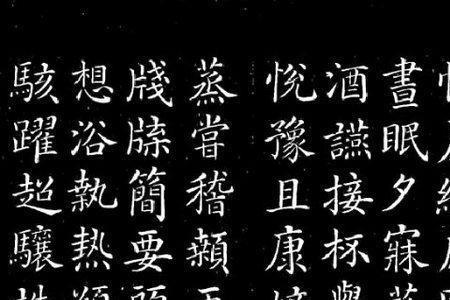 晝眠夕寐
酒讌接杯舉
悅豫且康
蒸嘗稽顙
牋牒簡要
想浴執熱
駭躍超驤